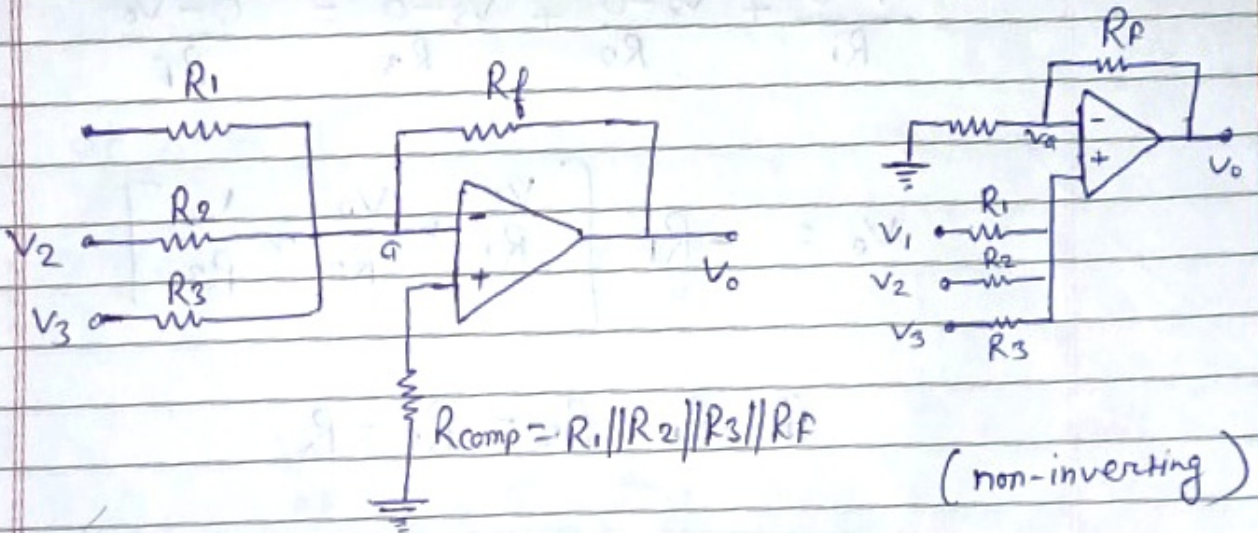 R1
Rf
R2
V2
a
R3
V3
-
+
V0
Rcomp = R1||R2||R3||RF
RF
va
-
+
V0
V1
R1
V2
R2
V3
R3
(non-inverting)